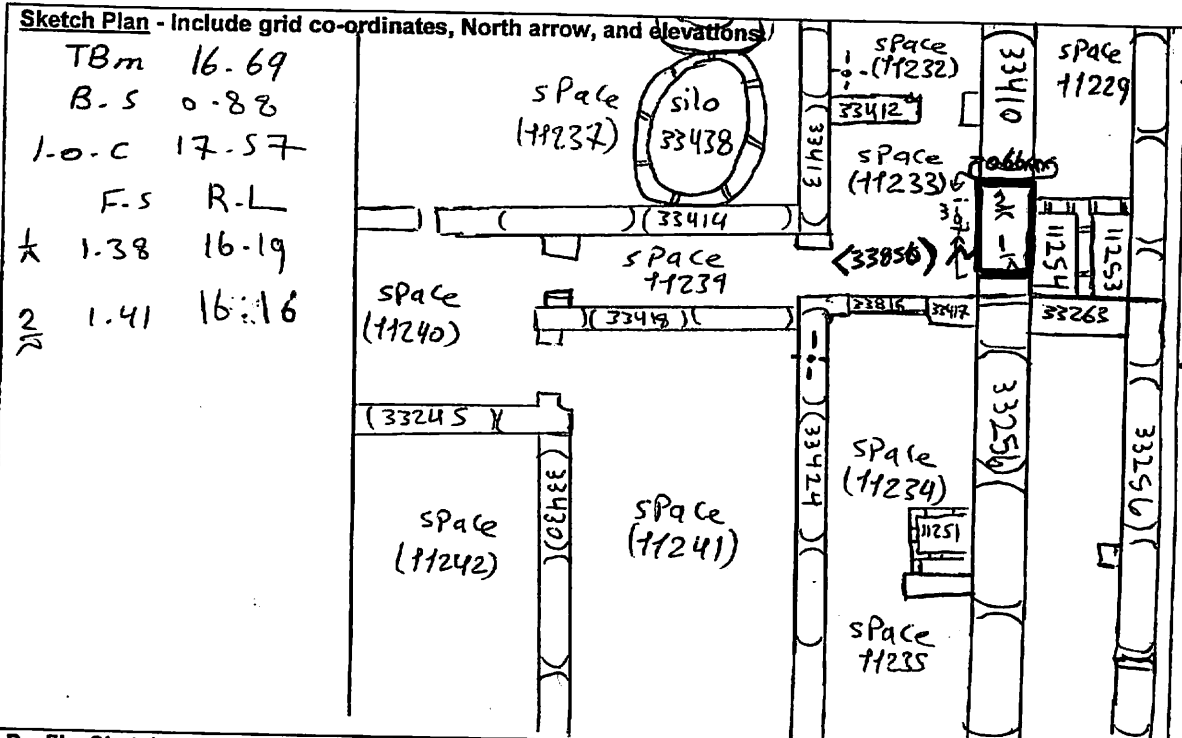 Sketch Plan - Include grid co-ordinates, North arrow, and elevations
TBm 16.69
B.S 0.88
I.O.C 17.57
F.S R.L
1 1.38 16.19
2 1.41 16.16
space
(11237)
silo
33438
(33413
space
(11232)
33412
33410
space
11229
space
(11233)
(33414)
<33856>
11254
11253
space
11239
space
(11240)
(33418)
33815
33417
33263
(33245)
(33430)
space
(11242)
space
(11241)
(33424
space
(11234)
11251
33256)
33256)
space
11235